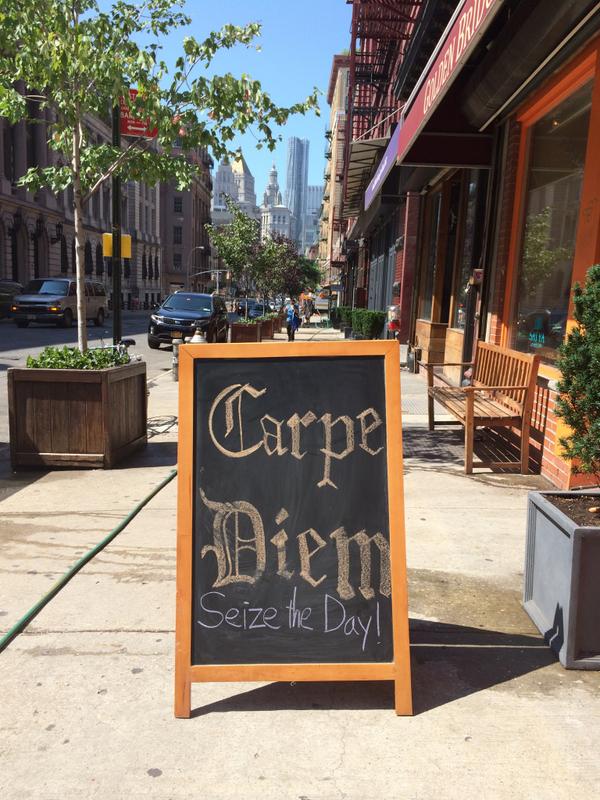 GOLDEN BRIDG
Carpe
Diem
Seize the Day!